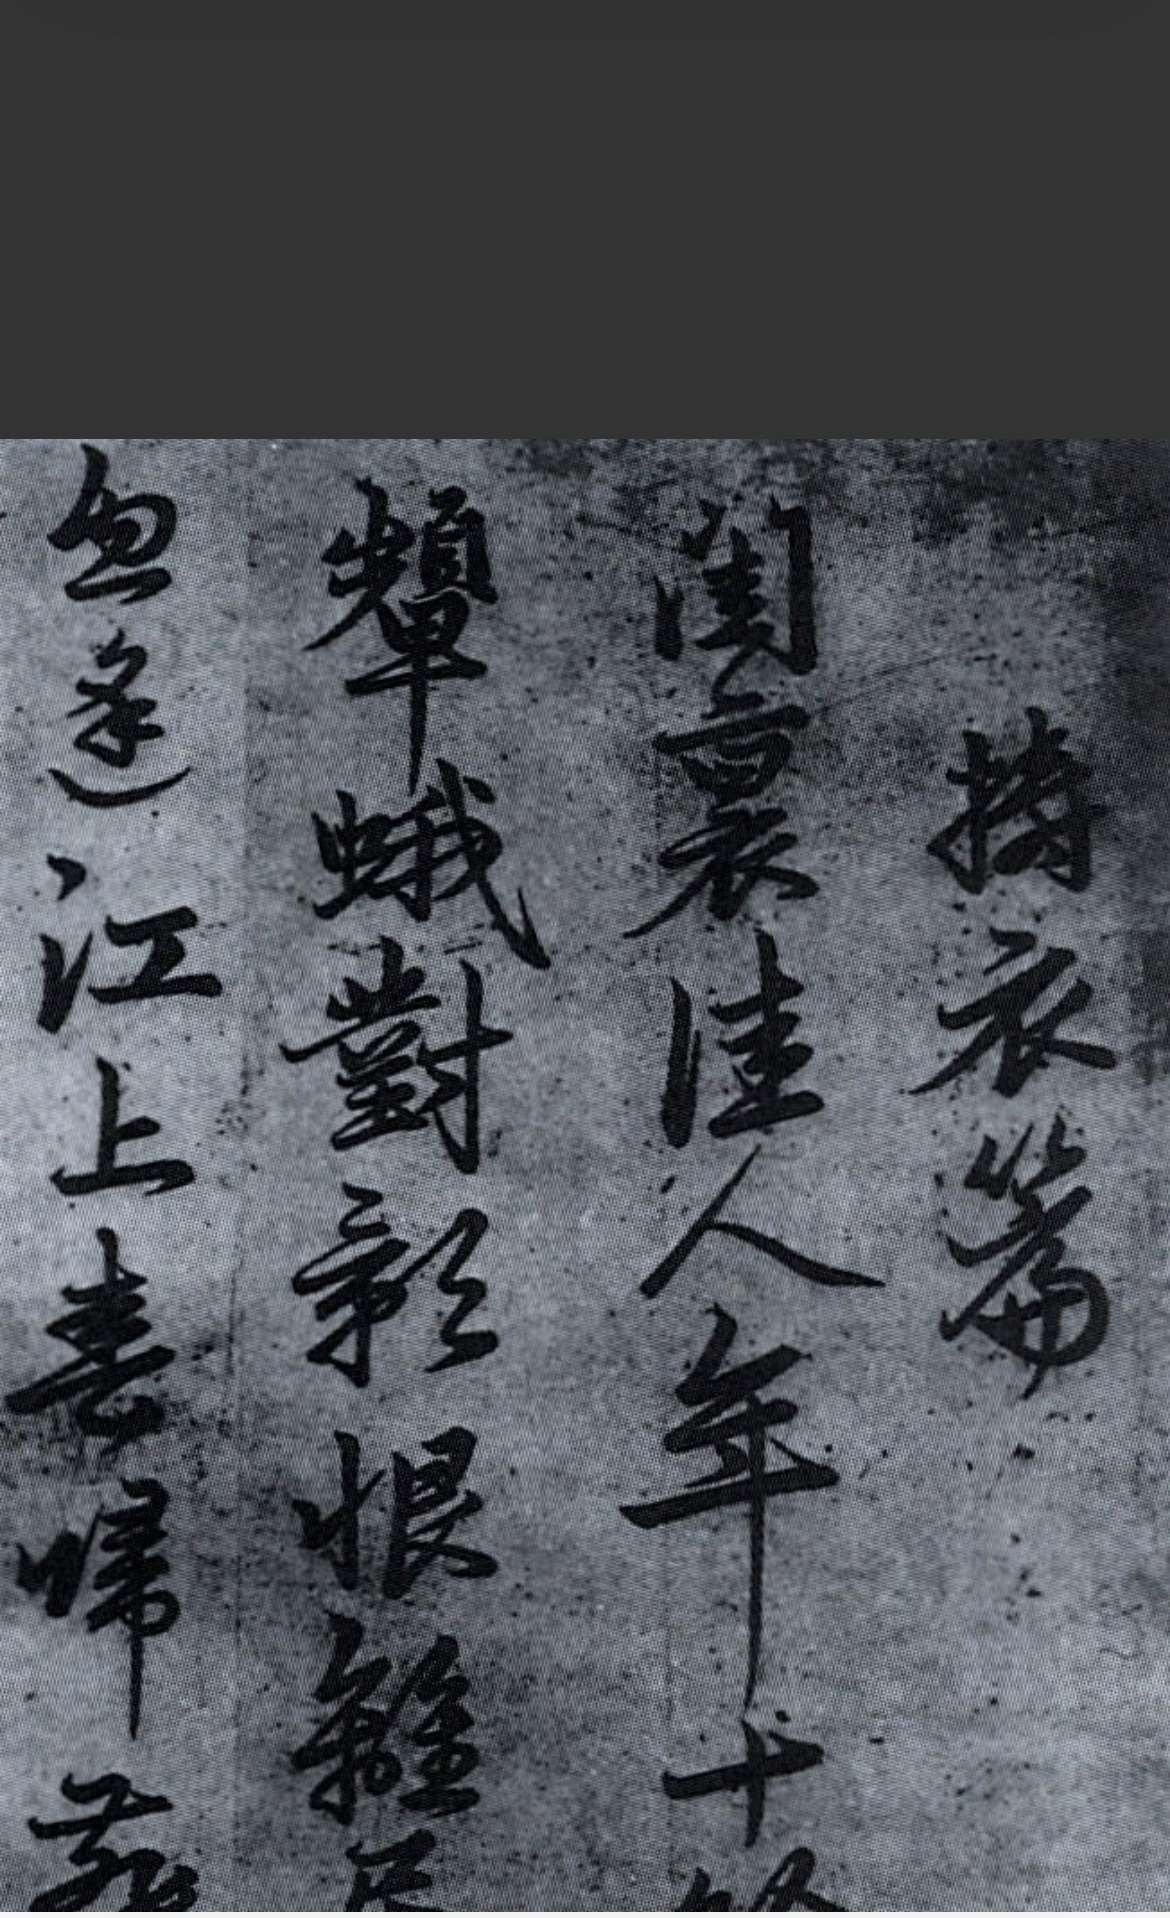 擣衣篇
閨裏佳人年十
顰蛾對影恨離
忽逢江上春歸燕